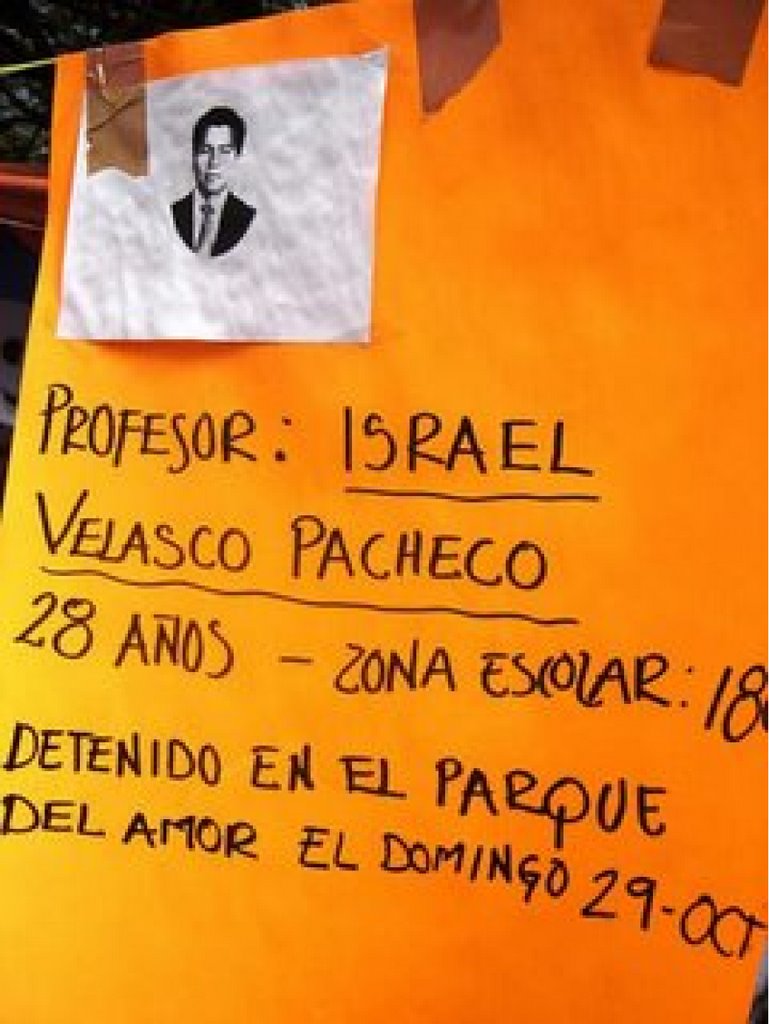 PROFESOR: ISRAEL
VELASCO PACHECO
28 AÑOS - ZONA ESCOLAR:
DETENIDO EN EL PARQUE
DEL AMOR EL DOMINGO 29-OCT